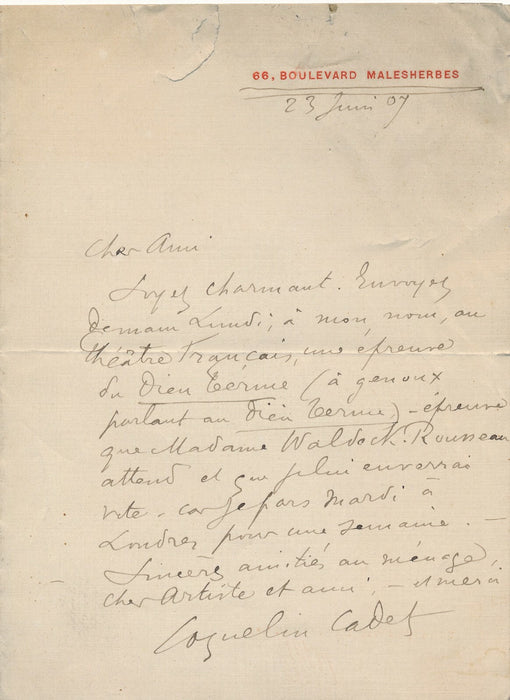 66, BOULEVARD MALESHERBES
23 Juin 07
Cher Ami
Soyez charmant. Envoyez
demain Lundi, à mon nom, au
théâtre Français, une épreuve
du Dieu Terme (à genoux
parlant au Dieu Terme) – épreuve
que Madame Waldeck-Rousseau
attend et que je lui enverrai
vite, car je pars Mardi à
Londres pour une semaine. –
Sincères amitiés au ménage,
cher Artiste et ami, – et merci
Coquelin Cadet